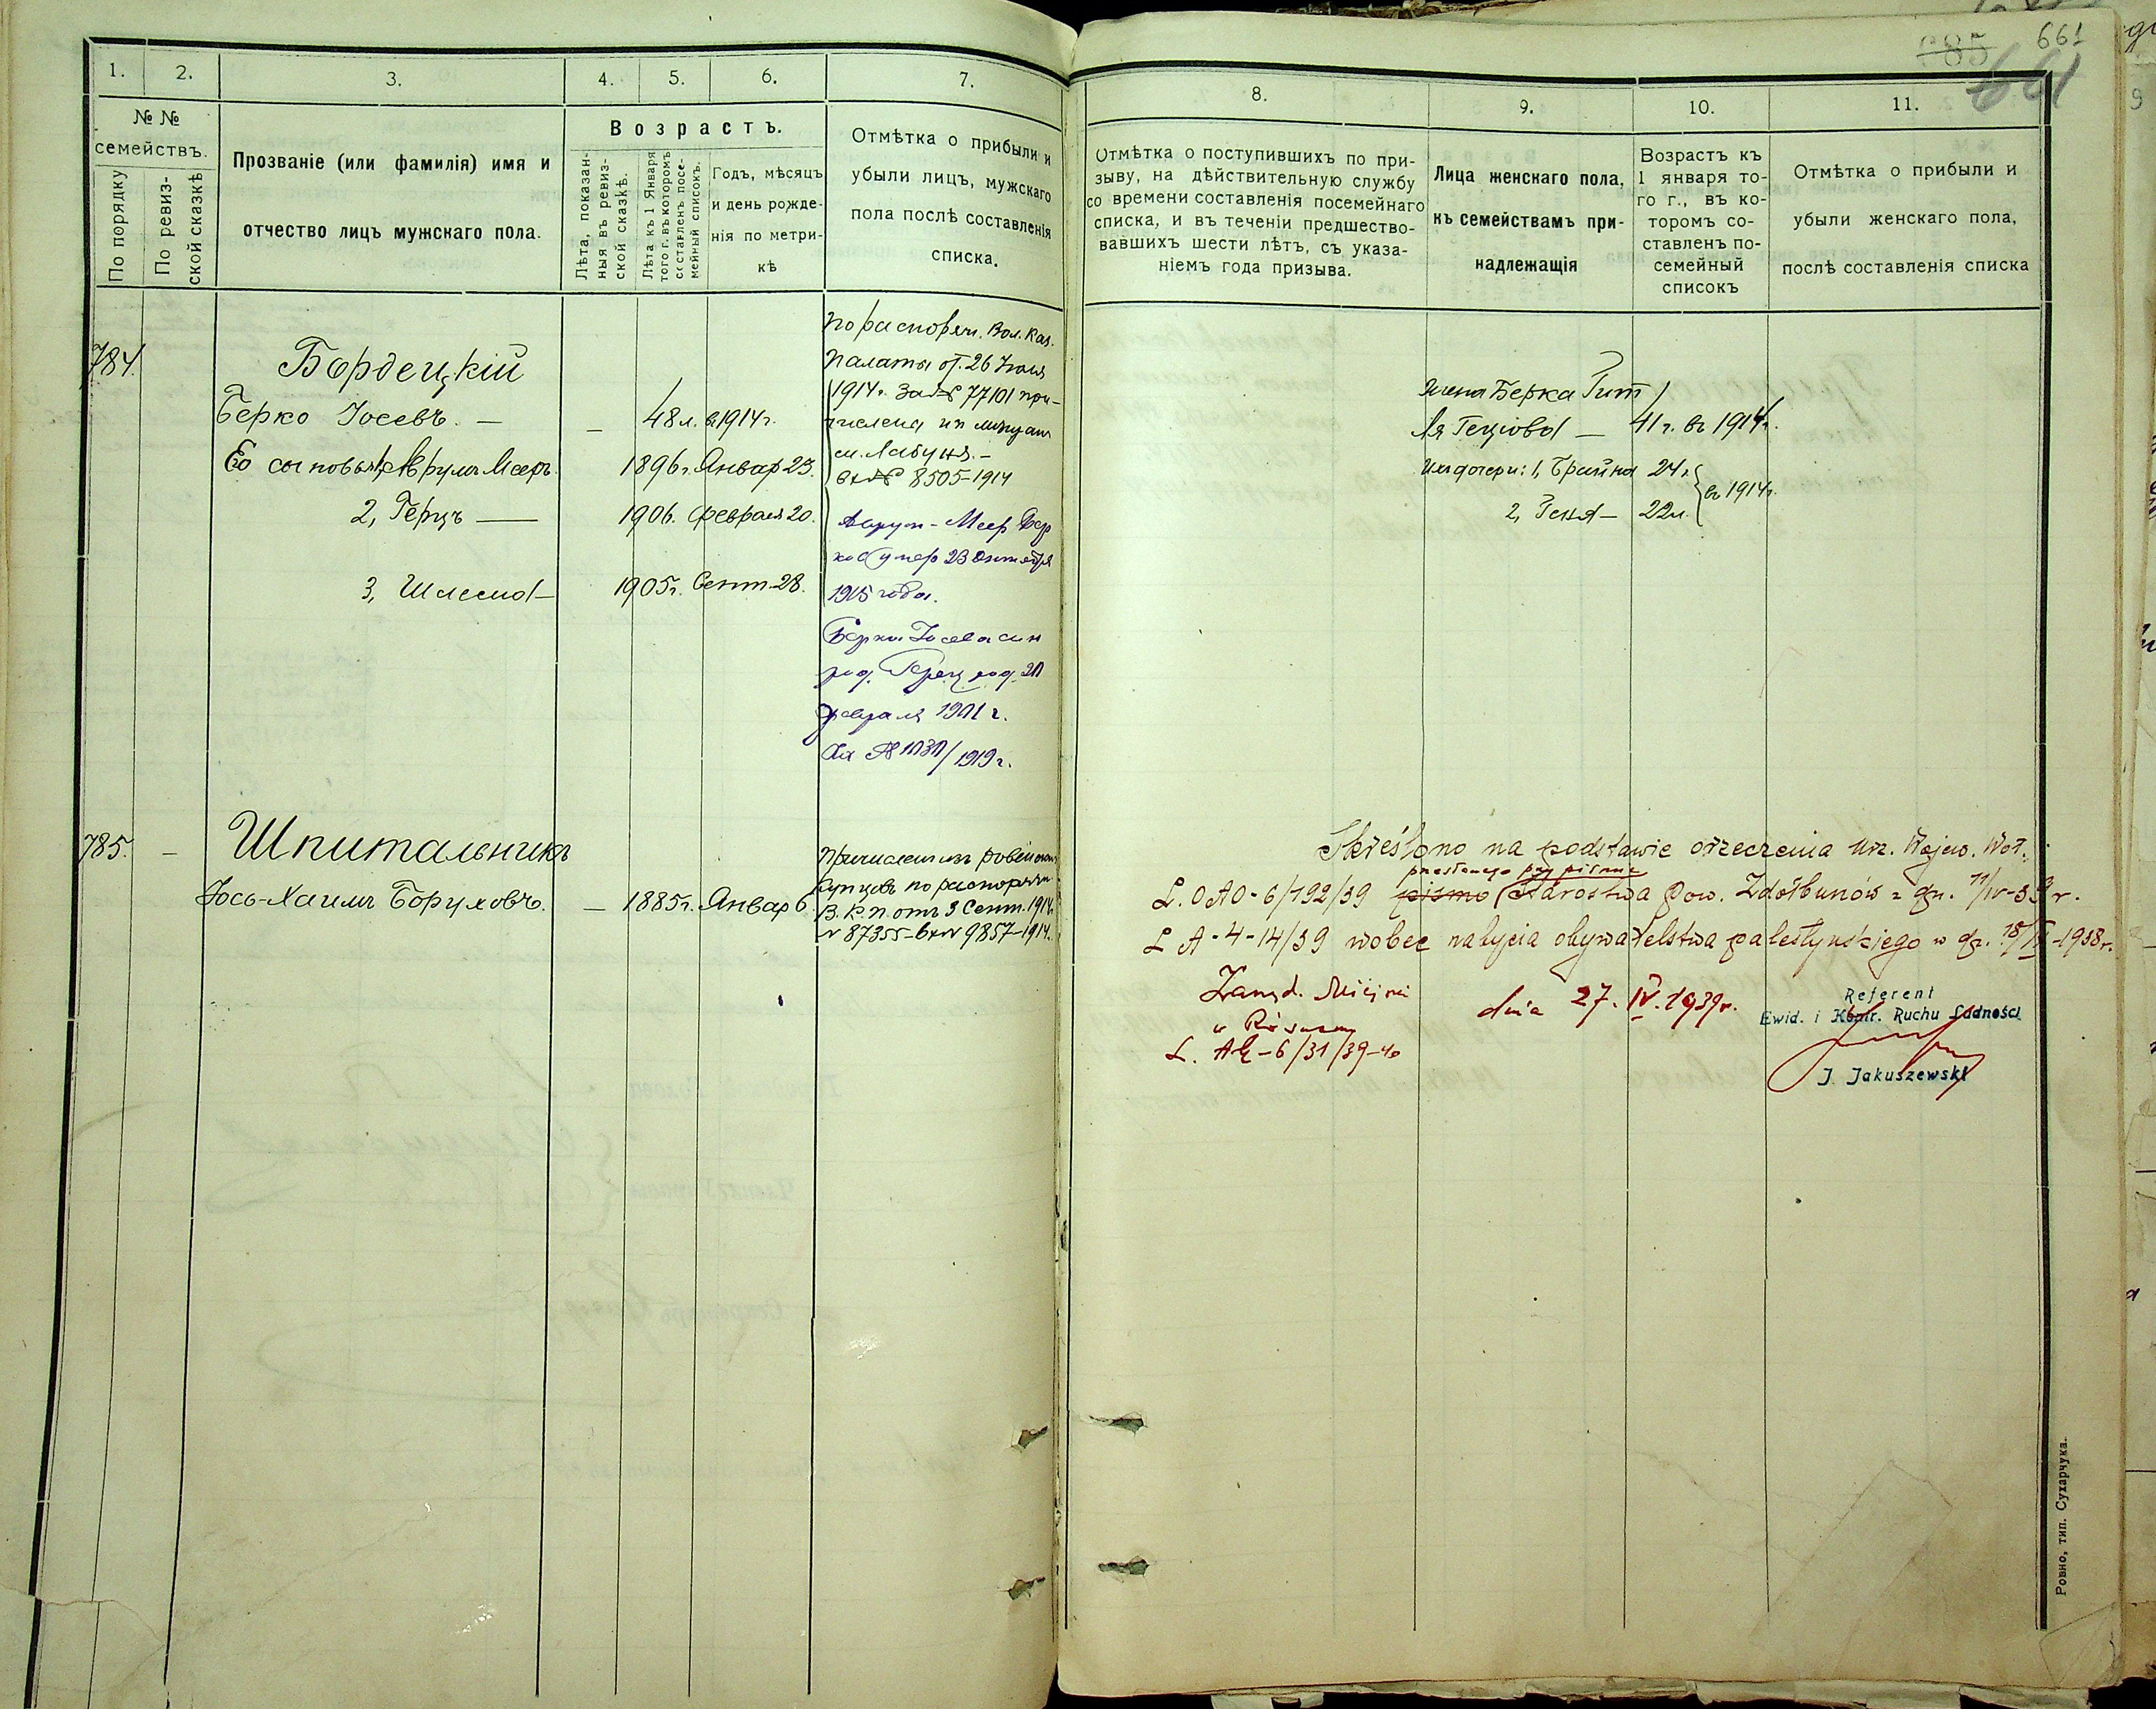 685 661
661
1. 2. 3. 4. 5. 6. 7.
№ №
семействъ.
По порядку
По ревиз-
ской сказкѣ
Прозваніе (или фамилія) имя и
отчество лицъ мужскаго пола.
Возрастъ.
Лѣта, показан-
ныя въ ревиз-
ской сказкѣ.
Лѣта къ 1 Января
того г. въ которомъ
составленъ посе-
мейный списокъ.
Годъ, мѣсяцъ
и день рожде-
нія по метри-
кѣ
Отмѣтка о прибыли и
убыли лицъ, мужскаго
пола послѣ составленія
списка.
784.
Бордецкій
Берко Іосевъ. — — 48 л. в 1914 г.
Его сыновья: 1, Аврумъ Мееръ. 1896 г. Январ 23.
2, Герцъ — 1906. Февраля 20.
3, Шлема — 1905 г. Сент. 28.
По распоряж. Вол. Каз.
Палаты от. 26 Іюля
1914 г. за № 77101 при-
числены къ мещан
м. Лабунь. —
вх № 8505-1914
Аврум-Меер Бер
ков умер 23 октября
1915 года.
Берка Іосева син
род. Герц род. 20
февраля 1901 г.
1919 г.
785. —
Шпитальникъ
Іось-Хаимъ Боруховъ. — 1885 г. Январ 6
Причисленъ изъ ровенских
купцовъ по распоряжен.
В. К. П. отъ 3 Сент. 1914
№ 87355 - вх № 9857-1914.
8. 9. 10. 11.
Отмѣтка о поступившихъ по при-
зыву, на дѣйствительную службу
со времени составленія посемейнаго
списка, и въ теченіи предшество-
вавшихъ шести лѣтъ, съ указа-
ніемъ года призыва.
Лица женскаго пола,
къ семействамъ при-
надлежащія
Возрастъ къ
1 января то-
го г., въ ко-
торомъ со-
ставленъ по-
семейный
списокъ
Отмѣтка о прибыли и
убыли женскаго пола,
послѣ составленія списка
жена Берка Гит
ля Геціова — 41 г. въ 1914 г.
Их дочери: 1, Брайна 24 л.
2, Геня — 22 л. въ 1914 г.
Skreślono na podstawie orzeczenia Urz. Wojew. Woł.
przesłanego przy piśmie
L. OAO-6/192/39 pismo Starostwa Pow. Zdołbunów z dn. 11/IV-39 r.
L A-4-14/39 wobec nabycia obywatelstwa palestyńskiego w dn. 18/IX-1938 r.
Zarząd. Miejski
w Równem
L. AE-6/31/39-40
dnia 27. IV. 1939 r.
Referent
Ewid. i Kontr. Ruchu Ludności
J. Jakuszewski
Ровно, тип. Сухарчука.